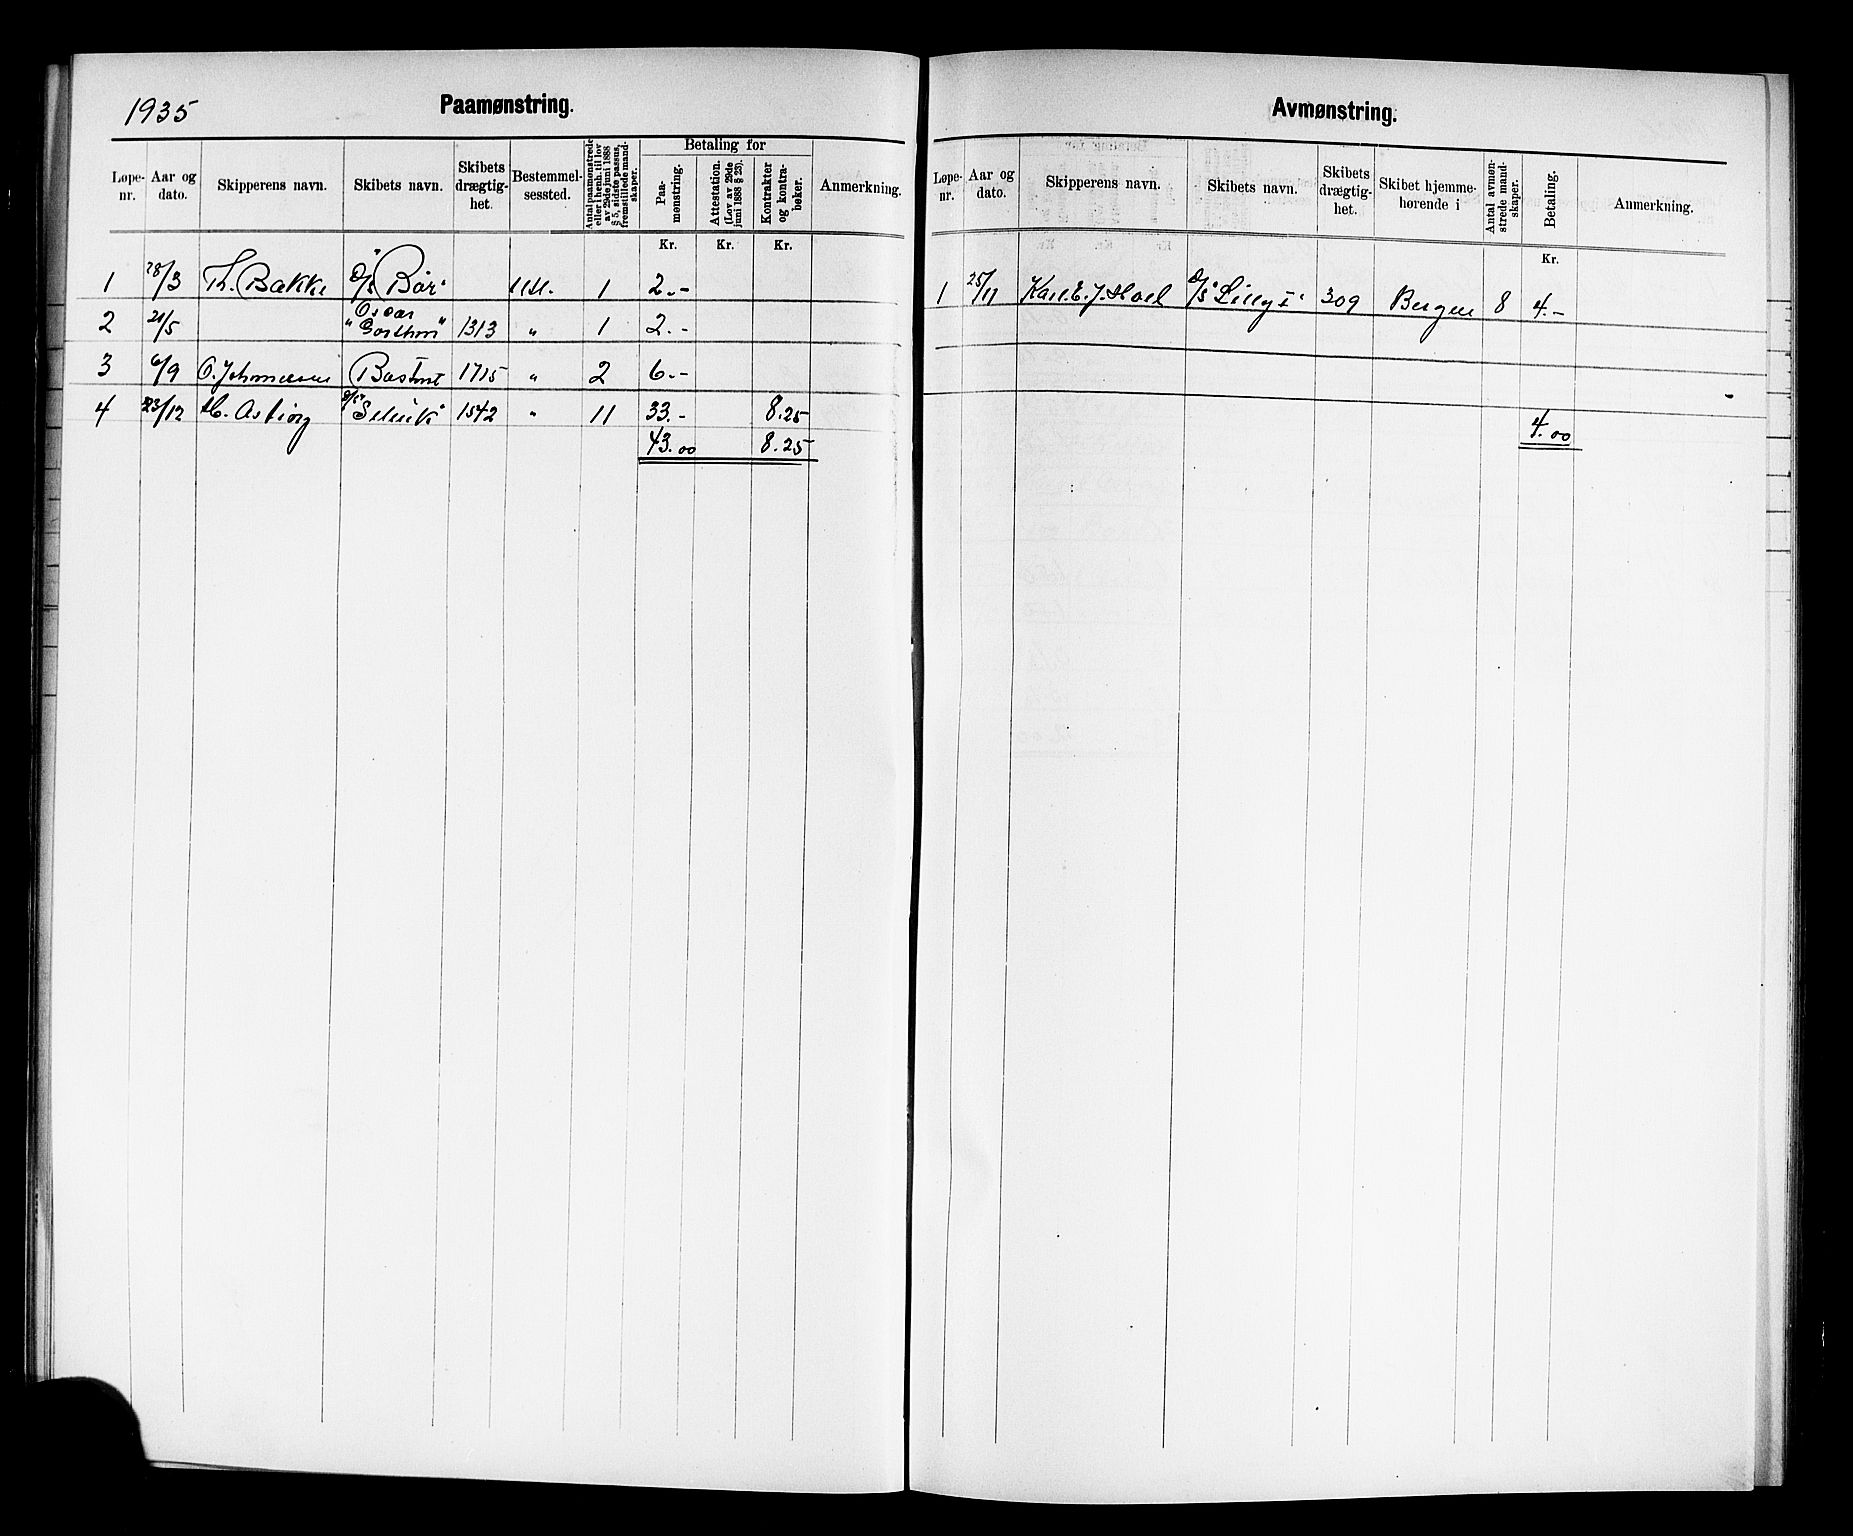 1935
Paamønstring.
Løpe-nr. Aar og dato. Skipperens navn. Skibets navn. Skibets drægtig-het. Bestemmel-sessted. Antal paamønstrede eller i henh. til lov av 29de juni 1888 § 5, sidste passus, fremstillede mand-skaper. Betaling for Paa-mønstring. Attestation. (Lov av 29de juni 1888 § 23). Kontrakter og kontra-bøker. Anmerkning.
Kr. Kr. Kr.
1 28/3 Th. Bakke D/s "Bør" 1 2.-
2 21/5 "Oscar Gorthon" 1313 " 1 2.-
3 6/9 O. Johannessen 1715 " 2 6.-
4 23/12 D/s 1542 " 11 33.- 8.25
43.00 8.25
Avmønstring.
Løpe-nr. Aar og dato. Skipperens navn. Skibets navn. Skibets drægtig-het. Skibet hjemme-hørende i Antal avmøn-strede mand-skaper. Betaling. Anmerkning.
Kr.
1 25/11 Karl E. J. Hoel D/s "Lilly I" 309 Bergen 8 4.-
4.00